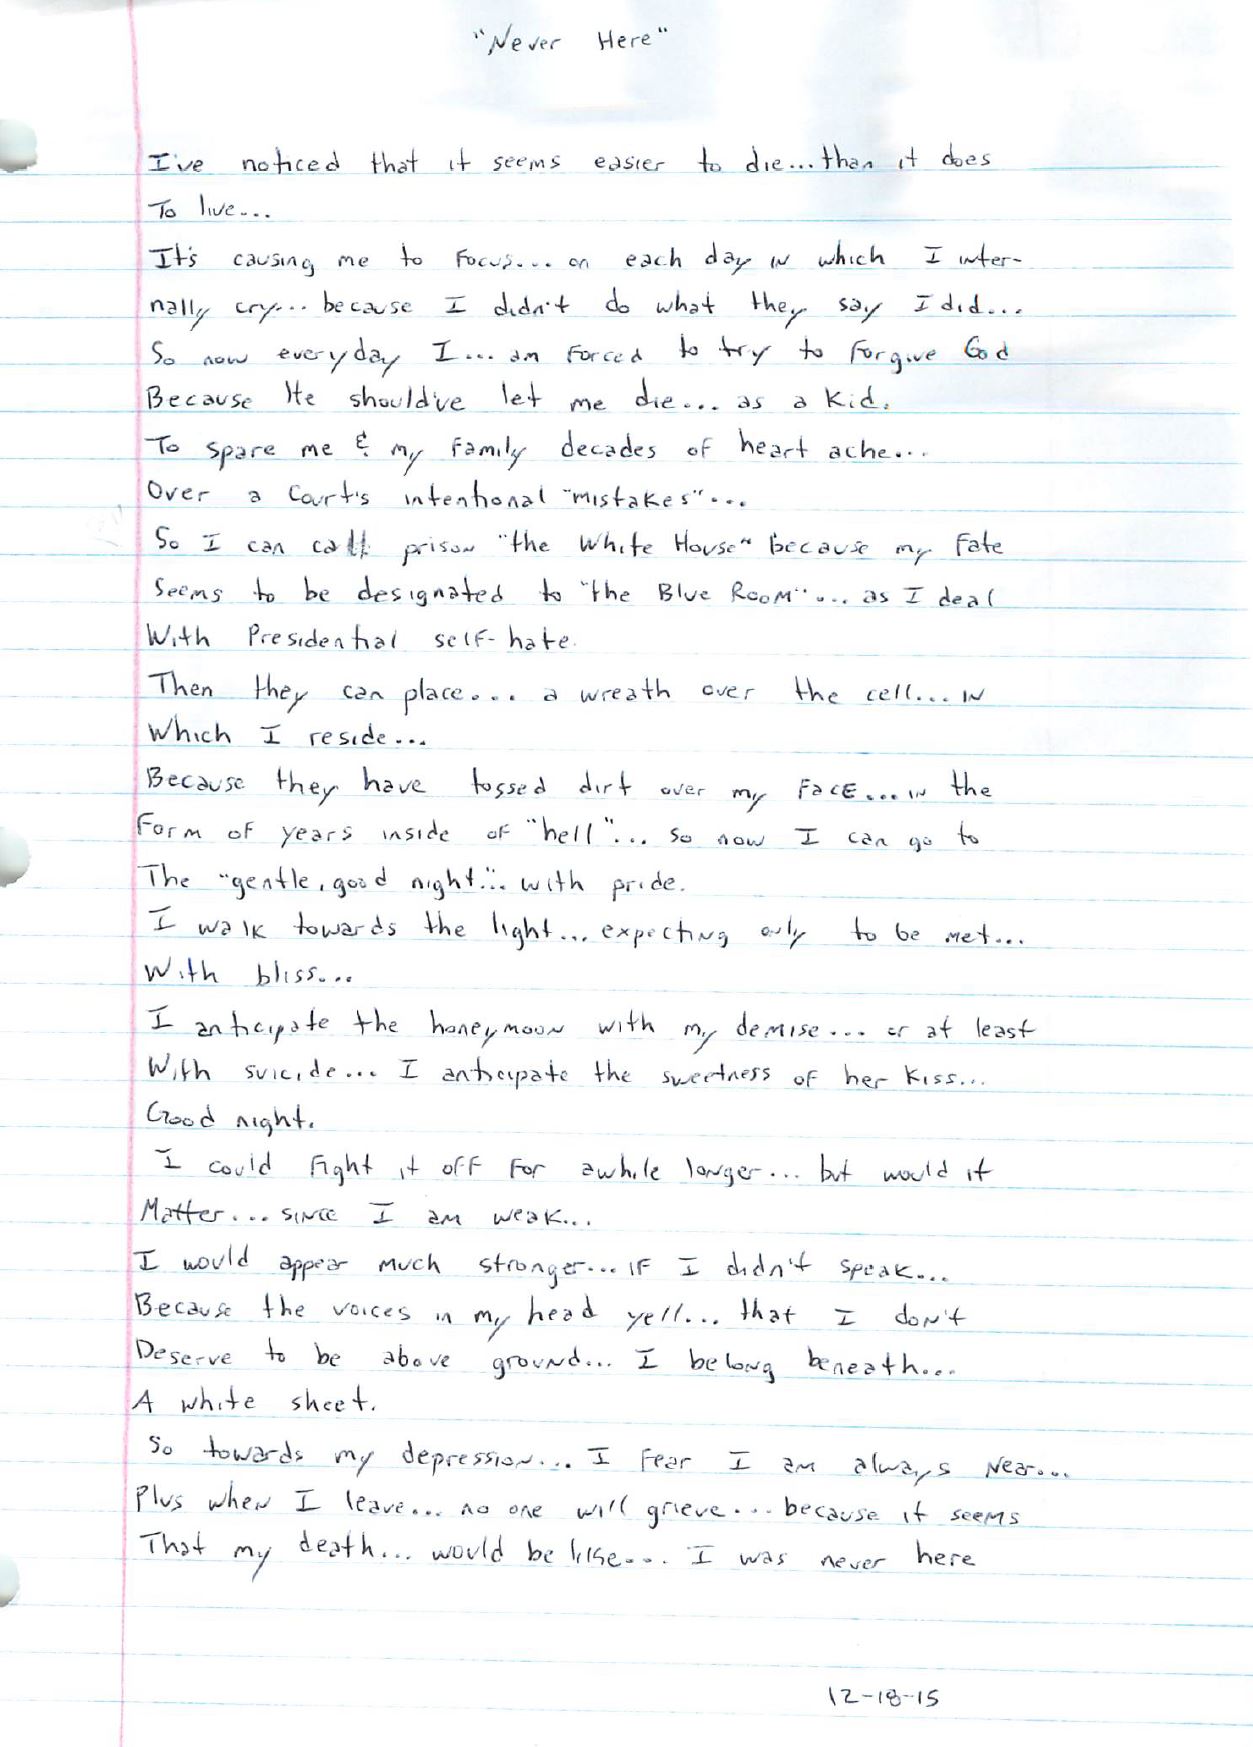 "Never Here"
I've noticed that it seems easier to die... than it does
To live...
It's causing me to focus... on each day in which I inter-
nally cry... because I didn't do what they say I did...
So now everyday I... am forced to try to forgive God
Because He should've let me die... as a kid.
To spare me & my family decades of heart ache...
Over a Court's intentional "mistakes"...
So I can call prison "the White House" because my fate
Seems to be designated to "the Blue Room"... as I deal
With Presidential self-hate.
Then they can place... a wreath over the cell... in
Which I reside...
Because they have tossed dirt over my face... in the
Form of years inside of "hell"... so now I can go to
The "gentle, good night"... with pride.
I walk towards the light... expecting only to be met...
With bliss...
I anticipate the honeymoon with my demise... or at least
With suicide... I anticipate the sweetness of her kiss...
Good night.
I could fight it off for awhile longer... but would it
Matter... since I am weak...
I would appear much stronger... if I didn't speak...
Because the voices in my head yell... that I don't
Deserve to be above ground... I belong beneath...
A white sheet.
So towards my depression... I fear I am always near...
Plus when I leave... no one will grieve... because it seems
That my death... would be like... I was never here
12-18-15